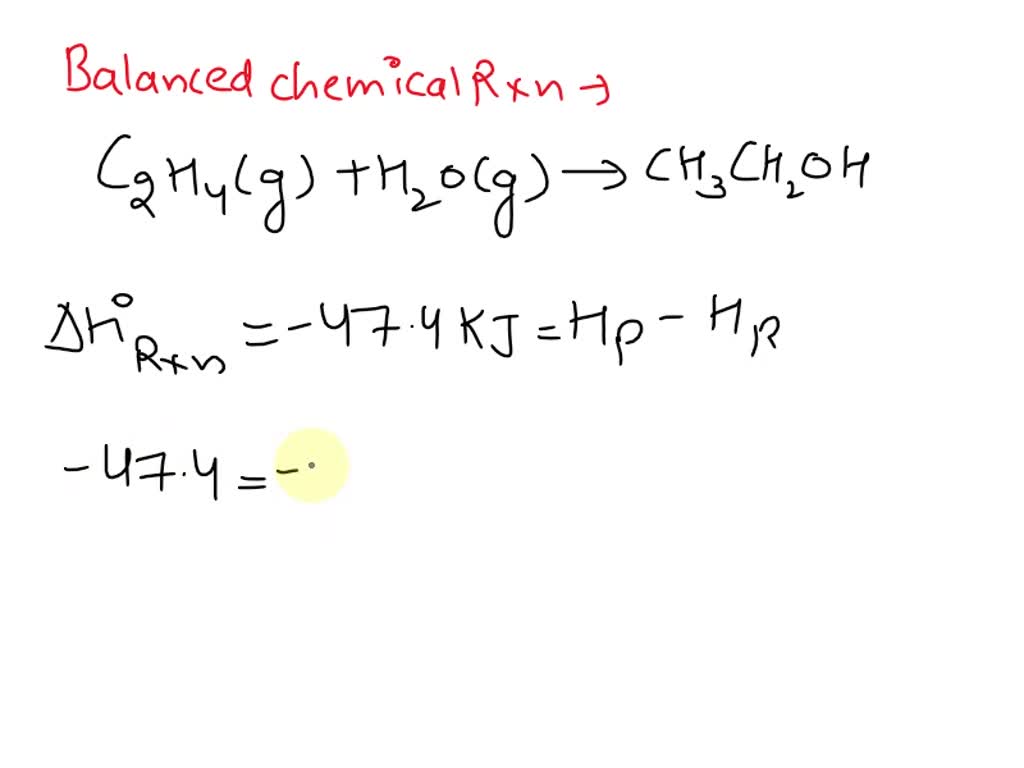 Balanced chemical Rxn →
C₂H₄(g) + H₂O(g) → CH₃CH₂OH
ΔH°Rxn = -47.4 KJ = Hp - HR
-47.4 = -